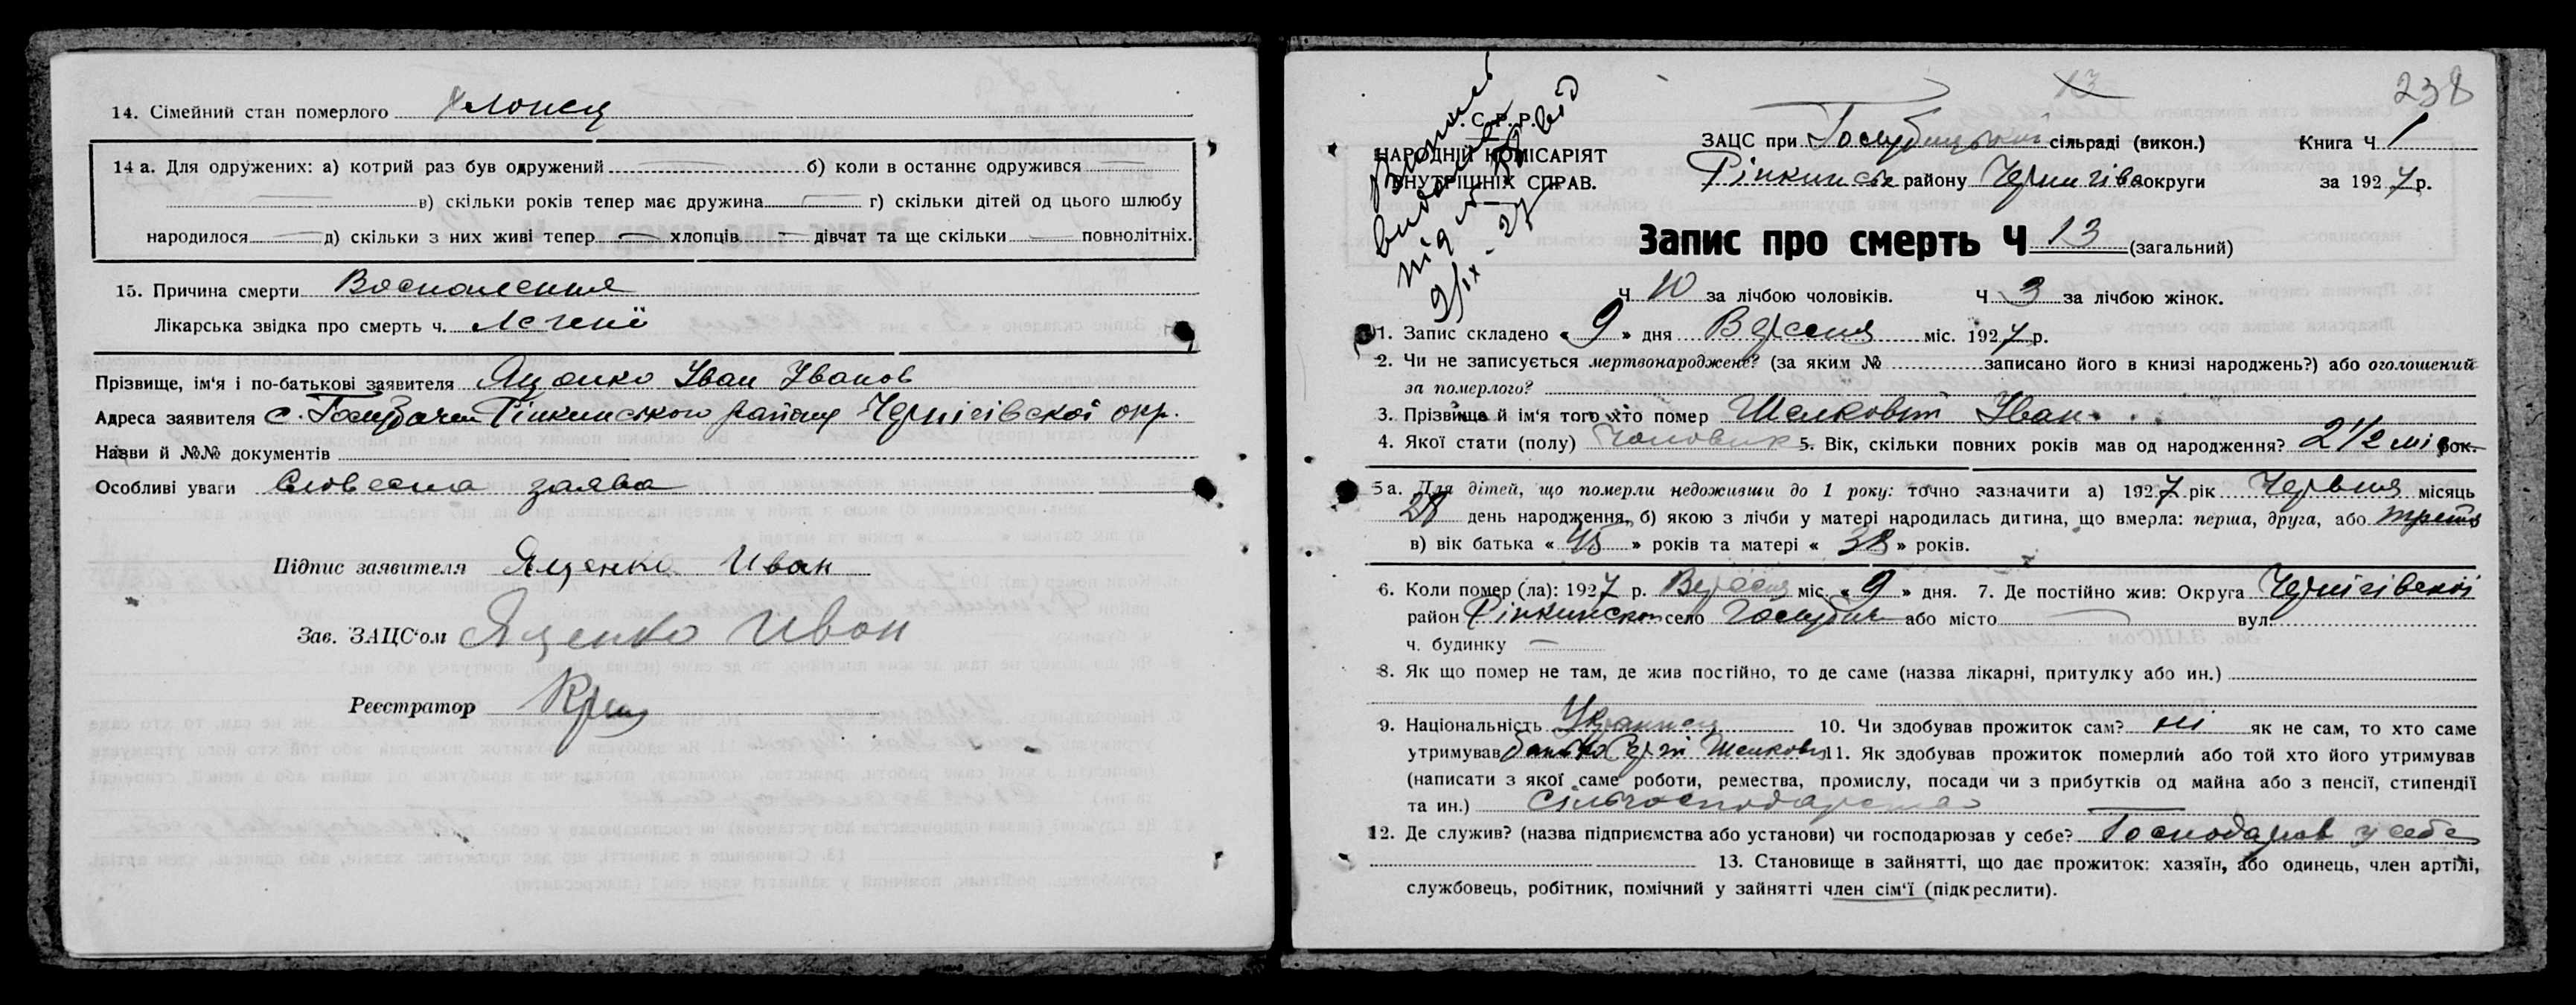 14. Сімейний стан померлого Хлопец
14 а. Для одружених: а) котрий раз був одружений б) коли в останнє одружився
в) скільки років тепер має дружина г) скільки дітей од цього шлюбу
народилося д) скільки з них живі тепер хлопців дівчат та ще скільки повнолітніх.
15. Причина смерти Воспаления
Лікарська звідка про смерть ч. Легенї
Прізвище, ім'я і по-батькові заявителя Яценко Іван Іванов
Адреса заявителя с. Голубичи Ріпкинського району Чернігівської окр.
Назви й №№ документів
Особливі уваги Словесна заява
Підпис заявителя Яценко Иван
Зав. ЗАЦС'ом Яценко Иван
Реєстратор
13
238
У. С. Р. Р.
НАРОДНІЙ КОМІСАРІЯТ
ВНУТРІШНІХ СПРАВ.
9/ІХ-27
ЗАЦС при Голубицькій сільраді (викон.) Книга Ч 1
Ріпкинськ району Чернигівс округи за 1927 р.
Запис про смерть Ч 13 (загальний)
Ч 10 за лічбою чоловіків. Ч 3 за лічбою жінок.
1. Запис складено « 9 » дня Вересня міс. 1927 р.
2. Чи не записується мертвонароджене? (за яким № записано його в книзі народжень?) або оголошений
за померлого?
3. Прізвище й ім'я того хто помер Шелковий Іван
4. Якої стати (полу) Чоловик 5. Вік, скільки повних років мав од народження? 2 1/2 міс рок.
5 а. Для дітей, що померли недоживши до 1 року: точно зазначити а) 1927 рік Червня місяць
28 день народження, б) якою з лічби у матері народилась дитина, що вмерла: перша, друга, або третя
в) вік батька « 45 » років та матері « 38 » років.
6. Коли помер (ла): 1927 р. Вересня міс. « 9 » дня. 7. Де постійно жив: Округа Чернігівської
район Ріпкинско село Голубичи або місто вул.
ч. будинку
8. Як що помер не там, де жив постійно, то де саме (назва лікарні, притулку або ин.)
9. Національність Українец 10. Чи здобував прожиток сам? ні як не сам, то хто саме
утримував батько Сергій Шелковий 11. Як здобував прожиток померлий або той хто його утримував
(написати з якої саме роботи, ремества, промислу, посади чи з прибутків од майна або з пенсії, стипендії
та ин.) Сільгосподарства
12. Де служив? (назва підприємства або установи) чи господарював у себе? Господарюв у себе
13. Становище в зайнятті, що дає прожиток: хазяїн, або одинець, член артілі,
службовець, робітник, помічний у зайнятті член сім'ї (підкреслити).